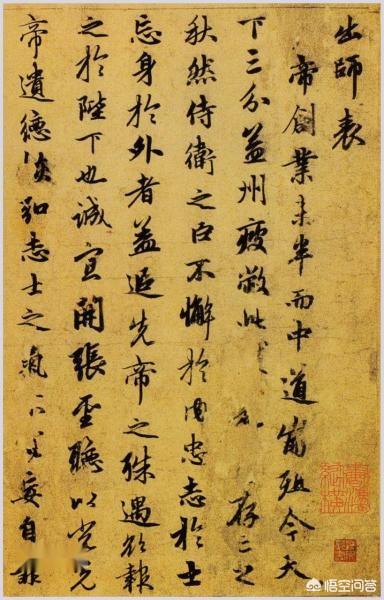 出師表
帝創業未半而中道崩殂今天
下三分益州疲敝此 存亡之
秋然侍衛之臣不懈於內忠志於士
忘身於外者蓋追先帝之殊遇欲報
之於陛下也誠宜開張聖聽以光先
帝遺德恢弘志士之氣不宜妄自菲
悟空问答